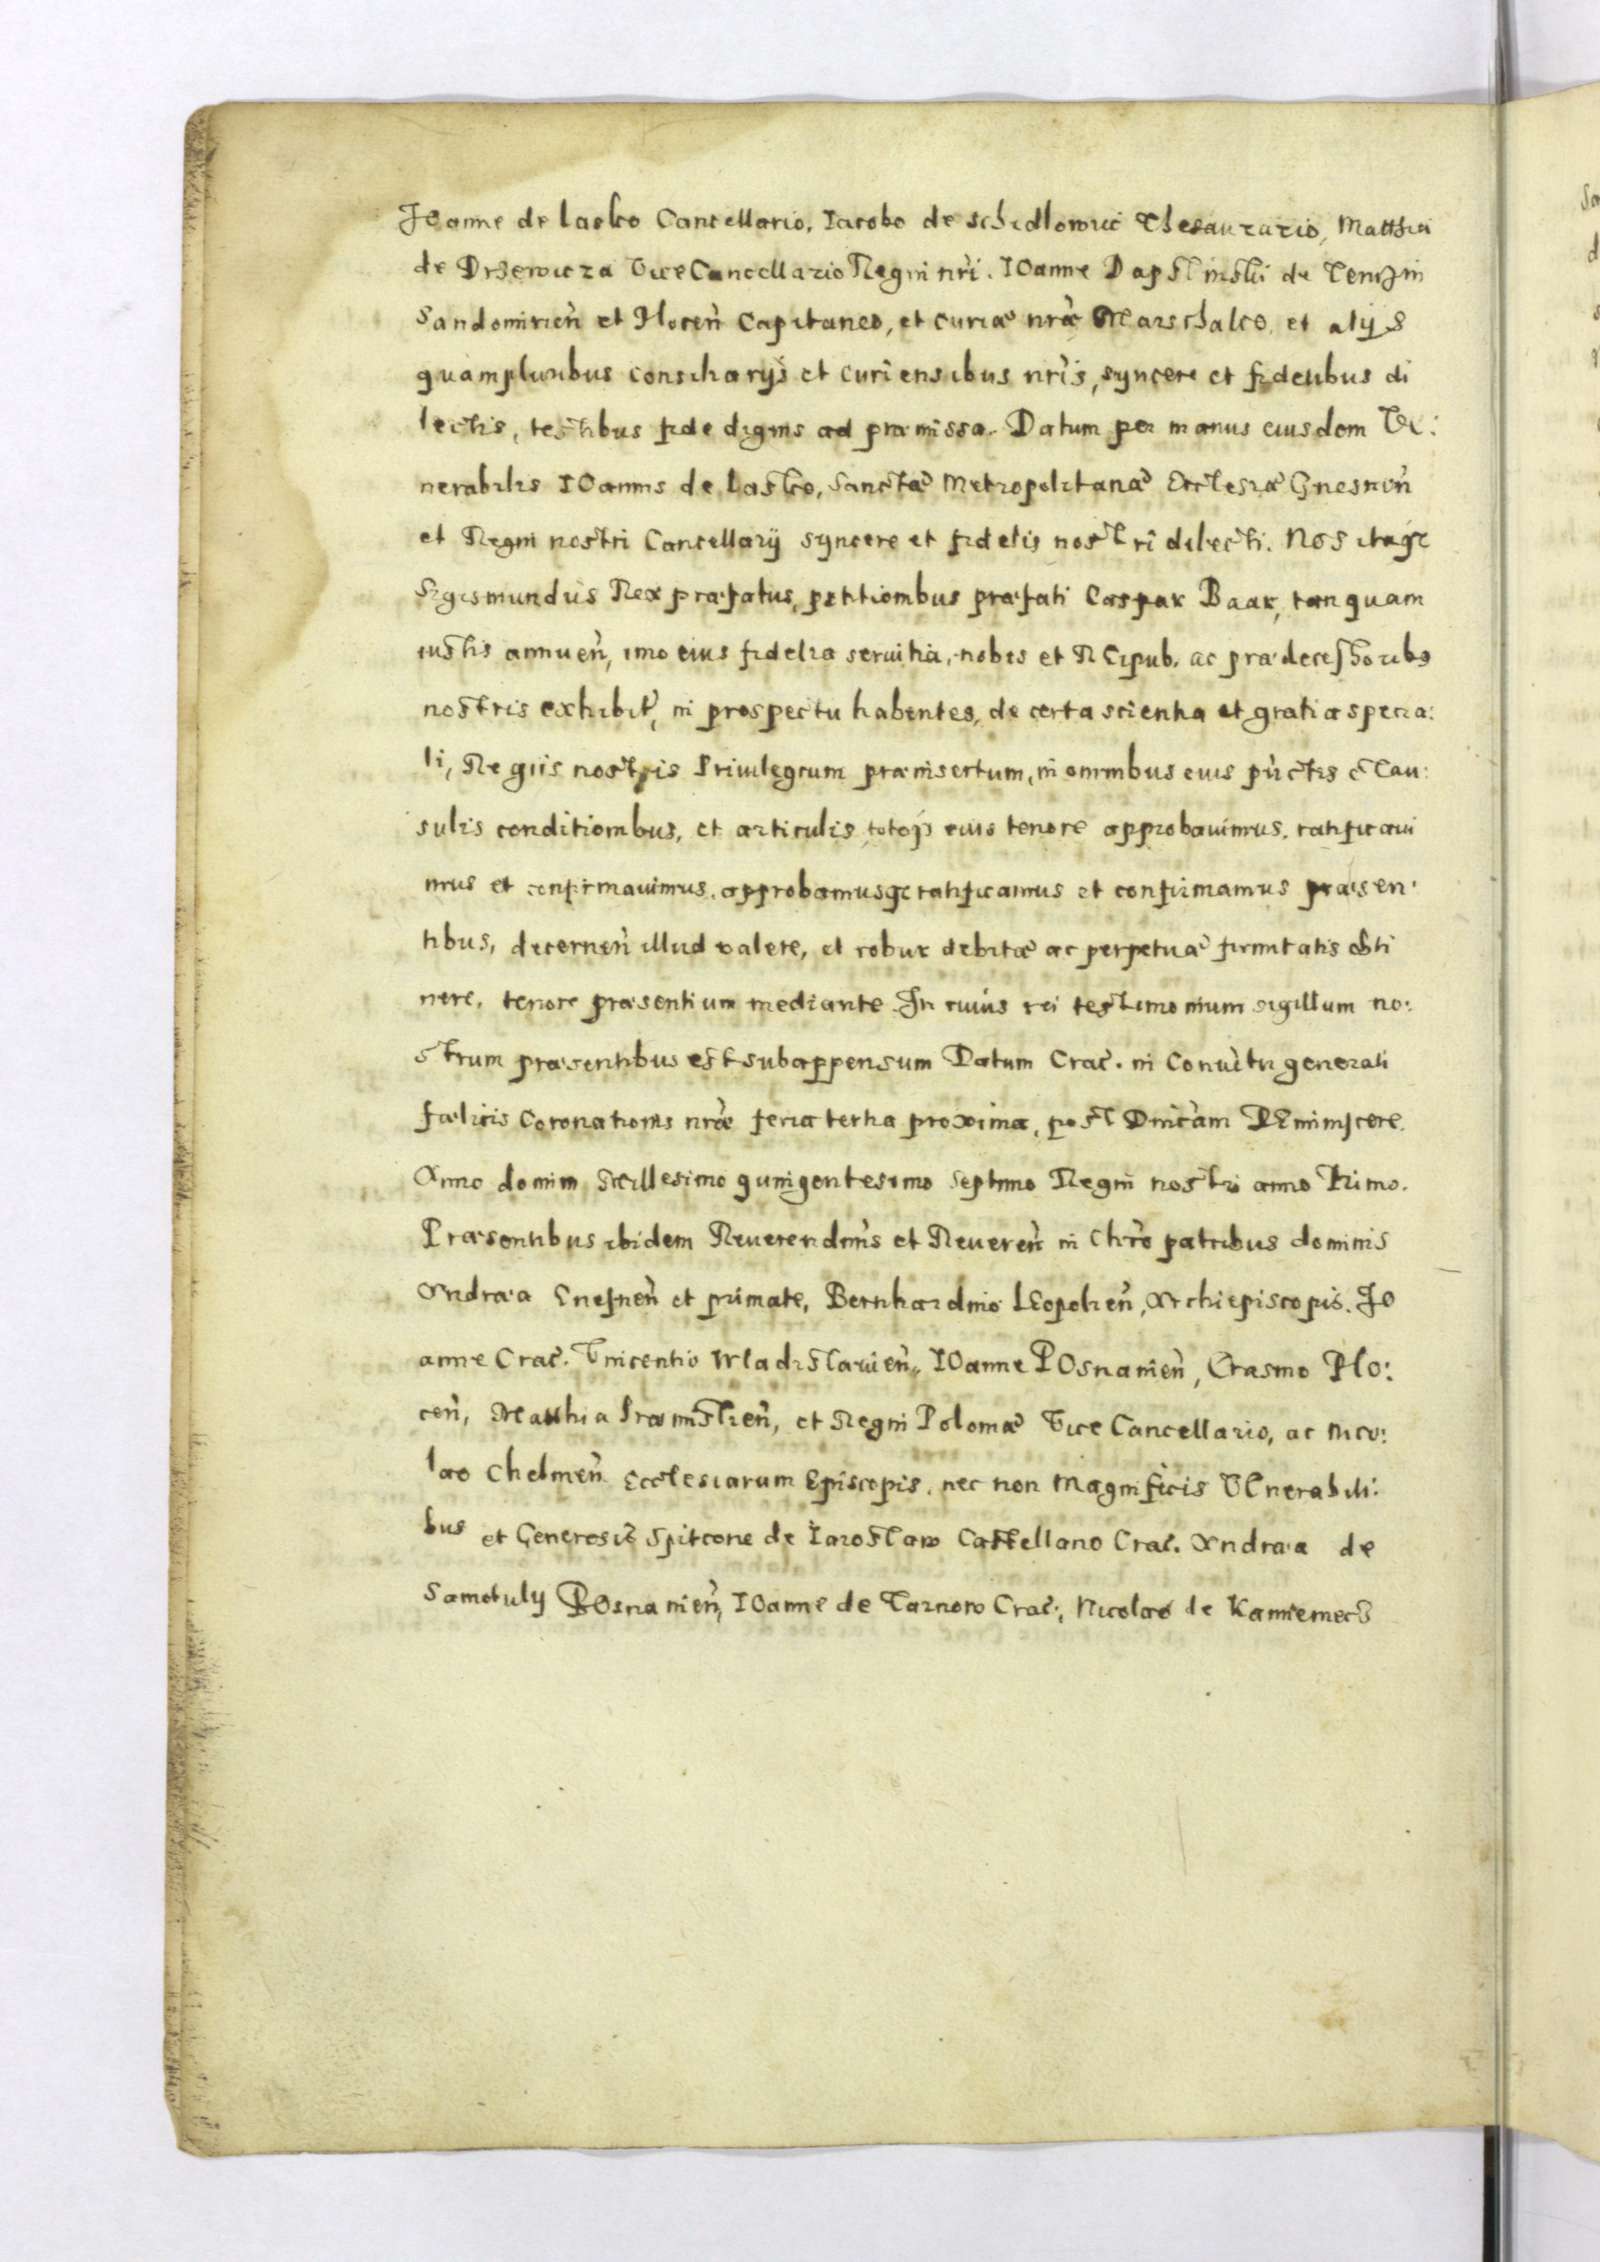 Joanne de Lasko Cancellario, Iacobo de Schidlowic Thesaurario, Matthia
de Drzewicza Vice Cancellario Regni nri. IOanne Rapstinski de Tenczin
Sandomirien et Plocen Capitaneo, et curiæ nræ Marschalco, et alijs
quampluribus consiliarijs et curiensibus nris, syncere et fidelibus di
lectis, testibus fide dignis ad præmissa. Datum per manus eiusdem Ve:
nerabilis IOannis de Lasko, Sanctæ Metropolitanæ Ecclesiæ Gnesnen
et Regni nostri Cancellarij syncere et fidelis nostri dilecti. Nos itaqe
Sigismundus Rex præfatus, petitionibus præfati Caspar Baar, tanquam
iustis annuen, imo eius fidelia servitia, nobis et REipub. ac prædecessoribs
nostris exhibit, in prospectu habentes, de certa scientia et gratia specia:
li, Regiis nostris Privilegium præinsertum, in omnibus eius punctis clau:
sulis conditionibus, et articulis totoq eius tenore approbavimus, ratificavi
mus et confirmavimus, approbamusqe ratificamus et confirmamus præsen:
tibus, decernen illud valere, et robur debitæ ac perpetuæ firmitatis obti
nere, tenore præsentium mediante. In cuius rei testimonium sigillum no:
strum præsentibus est subappensum Datum Crac. in Conventu generali
fælicis Coronationis nræ feria tertia proxima, post Dnicam REminiscere.
Anno domini Millesimo quingentesimo septimo Regni nostri anno Primo.
Præsentibus ibidem Reverendmis et Reveren in Chro patribus dominis
Andræa Gnesnen et primate, Bernhardino LEopolien, Archiepiscopis. Jo
anne Crac. Vincentio Wladislavien, IOanne POsnanien, Erasmo Plo:
cen, Matthia Præmislien, et Regni Poloniæ Vice Cancellario, ac Nico:
lao Chelmen Ecclesiarum Episcopis, nec non Magnificis VEnerabili:
bus et Generosis Spitcone de Iaroslaw Castellano Crac. Andræa de
Samotuly POsnanien, IOanne de Tarnow Crac:, Nicolao de Kamienecz